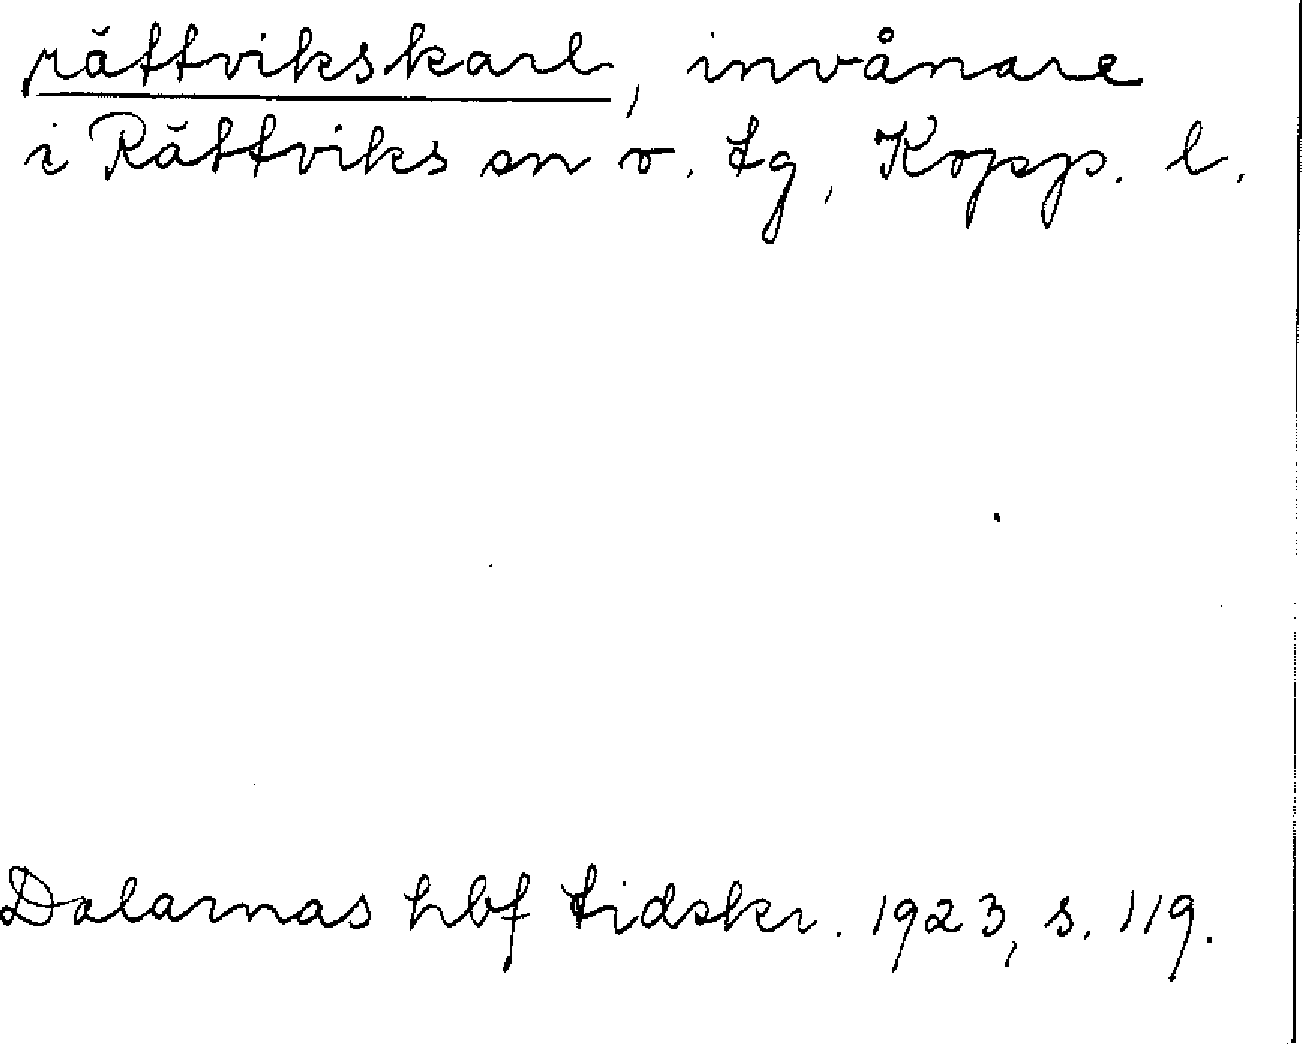 rättvikskarl, invånare
i Rättviks sn o. tg, Kopp. l.
Dalarnas hbf tidskr. 1923, s. 119.